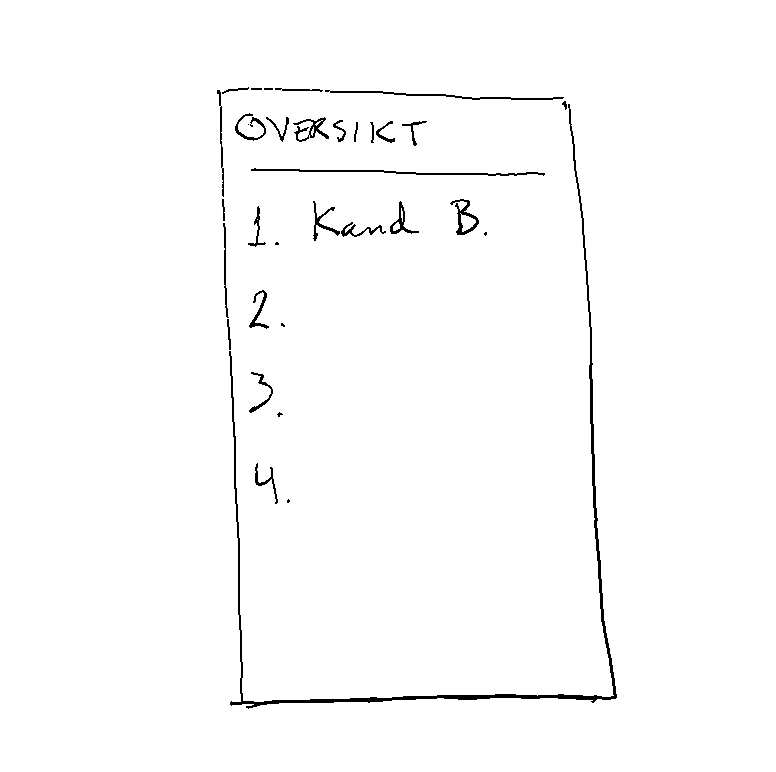 OVERSIKT
1. Kand B.
2.
3.
4.